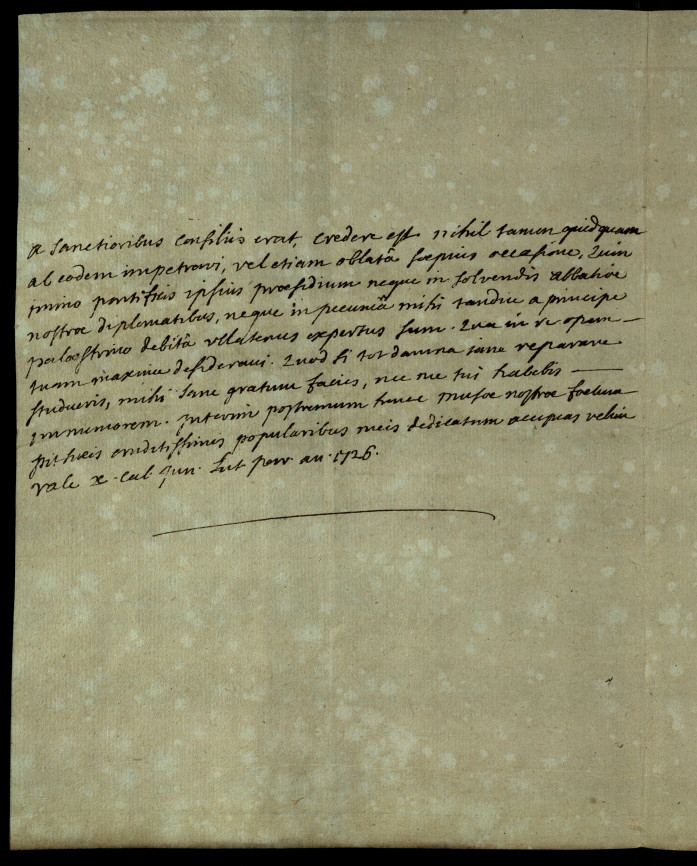 a Sanctioribus Consiliis erat, credere est nihil tamen quidquam
ab eodem impetravi, vel etiam oblatâ saepius occasione, Quin
immo pontificis ipsius praesidium neque in solvendis abbatiae
nostrae diplomatibus, neque in pecuniâ mihi tandiu a principe
palaestrino debitâ ullatenus expertus sum. Qua in re opem
tuam maxime desideravi. Quod si tot damna sane reparare
studueris, mihi sane gratum facies, nec me tui habebis
immemorem. Interim postremum hunc musae nostrae foetum
eruditissimis popularibus meis dedicatum accipias velim
vale x. cal. Jun. Lut par an. 1726.